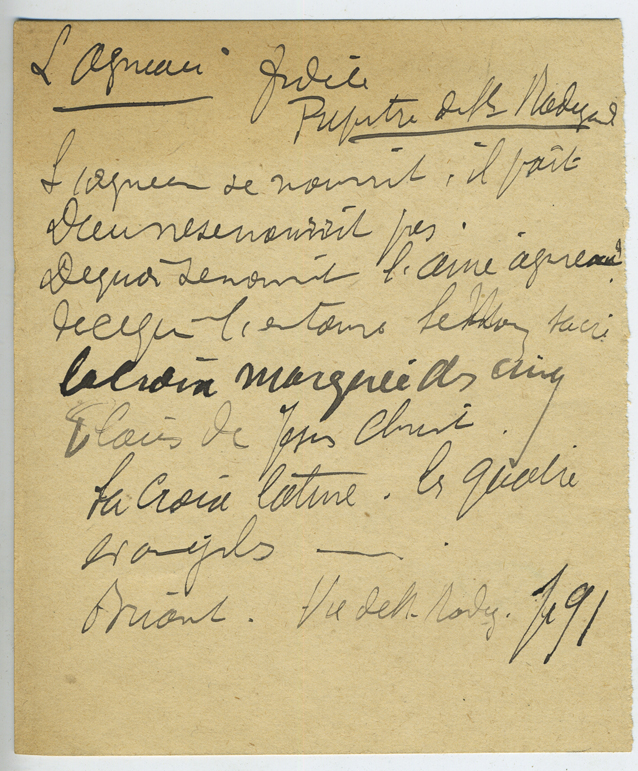 L'Agneau fidèle
Pupitre de Ste Radegonde
L'agneau se nourrit, il paît
Dieu ne se nourrit pas.
De quoi se nourrit l'âme agneau ?
de ce qui l'entoure le sacré
la croix marquée des cinq
Plaies de Jésus Christ.
La Croix latine. les quatre
évangiles
Briant. Vie de Ste Radeg. p 91